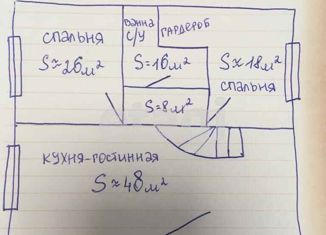 спальня
S≈26м²
ванна
с/у
ГАРДЕРОБ
S=16м²
S≈18м²
спальня
S=8м²
кухня-гостинная
S≈48м²